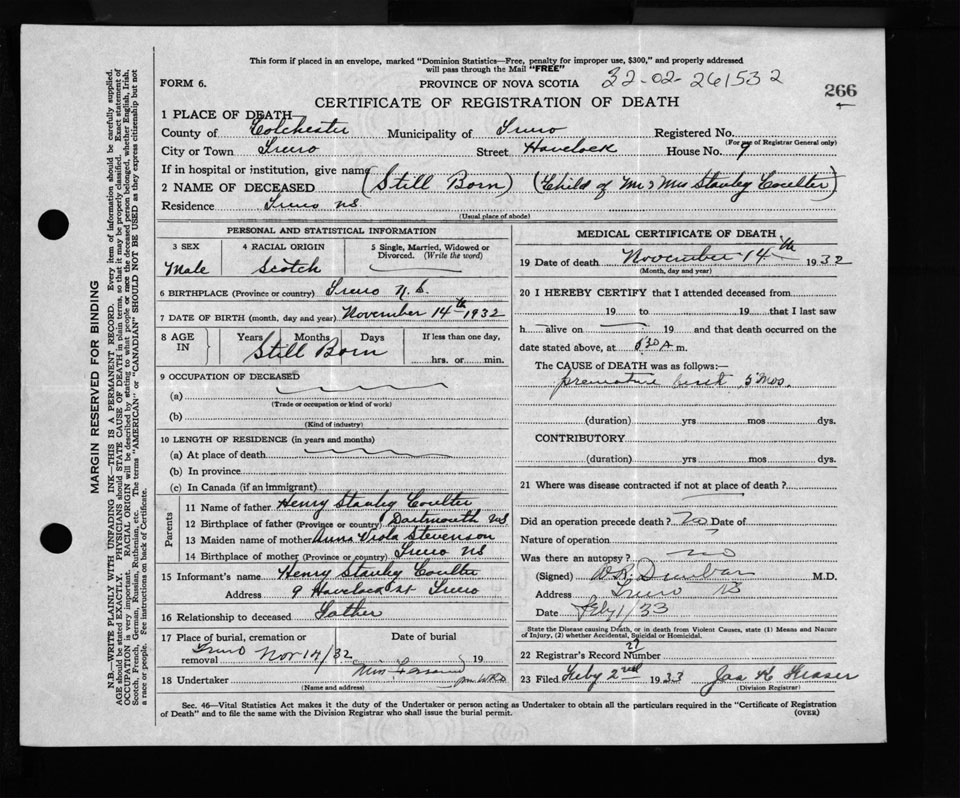 This form if placed in an envelope, marked "Dominion Statistics—Free, penalty for improper use, $300," and properly addressed
will pass through the Mail "FREE"
FORM 6. PROVINCE OF NOVA SCOTIA 32-02-261532
266
CERTIFICATE OF REGISTRATION OF DEATH
1 PLACE OF DEATH
County of Colchester Municipality of Truro Registered No.
(For use of Registrar General only)
City or Town Truro Street Havelock House No. 9
If in hospital or institution, give name
2 NAME OF DECEASED (Still Born) (Child of Mr & Mrs Stanley Coulter)
Residence Truro NS
(Usual place of abode)
PERSONAL AND STATISTICAL INFORMATION
3 SEX 4 RACIAL ORIGIN 5 Single, Married, Widowed or
Divorced. (Write the word)
Male Scotch
6 BIRTHPLACE (Province or country) Truro N.S.
7 DATE OF BIRTH (month, day and year) November 14th 1932
8 AGE IN Years Months Days If less than one day,
Still Born hrs. or min.
9 OCCUPATION OF DECEASED
(a)
(Trade or occupation or kind of work)
(b)
(Kind of industry)
10 LENGTH OF RESIDENCE (in years and months)
(a) At place of death
(b) In province
(c) In Canada (if an immigrant)
Parents
11 Name of father Henry Stanley Coulter
12 Birthplace of father (Province or country) Dartmouth NS
13 Maiden name of mother Anna Viola Stevenson
14 Birthplace of mother (Province or country) Truro NS
15 Informant's name Henry Stanley Coulter
Address 9 Havelock St Truro
16 Relationship to deceased Father
17 Place of burial, cremation or Date of burial
removal Truro Nov 14/32 19
18 Undertaker
(Name and address)
MEDICAL CERTIFICATE OF DEATH
19 Date of death November 14th 1932
(Month, day and year)
20 I HEREBY CERTIFY that I attended deceased from
19 to 19 that I last saw
h alive on 19 and that death occurred on the
date stated above, at 630 A m.
The CAUSE of DEATH was as follows:—
premature birth 5 mos.
(duration) yrs mos dys.
CONTRIBUTORY
(duration) yrs mos dys.
21 Where was disease contracted if not at place of death?
Did an operation precede death? no Date of
Nature of operation
Was there an autopsy? no
(Signed) Dunbar M.D.
Address Truro NS
Date Feby 1/33
State the Disease causing Death, or in death from Violent Causes, state (1) Means and Nature
of Injury, (2) whether Accidental, Suicidal or Homicidal.
22 Registrar's Record Number 27
23 Filed Feby 2nd 1933 Jas K
(Division Registrar)
Sec. 46—Vital Statistics Act makes it the duty of the Undertaker or person acting as Undertaker to obtain all the particulars required in the "Certificate of Registration
of Death" and to file the same with the Division Registrar who shall issue the burial permit. (OVER)
MARGIN RESERVED FOR BINDING
N.B.—WRITE PLAINLY WITH UNFADING INK—THIS IS A PERMANENT RECORD. Every item of information should be carefully supplied.
AGE should be stated EXACTLY. PHYSICIANS should STATE CAUSE OF DEATH in plain terms, so that it may be properly classified. Exact statement of
OCCUPATION is very important. RACIAL ORIGIN will be described by stating to what people or race the deceased person belonged, whether English, Irish,
Scotch, French, German, Russian, Ruthenian, etc. The terms "AMERICAN" or "CANADIAN" SHOULD NOT BE USED as they express citizenship but not
a race or people. See instructions on back of Certificate.